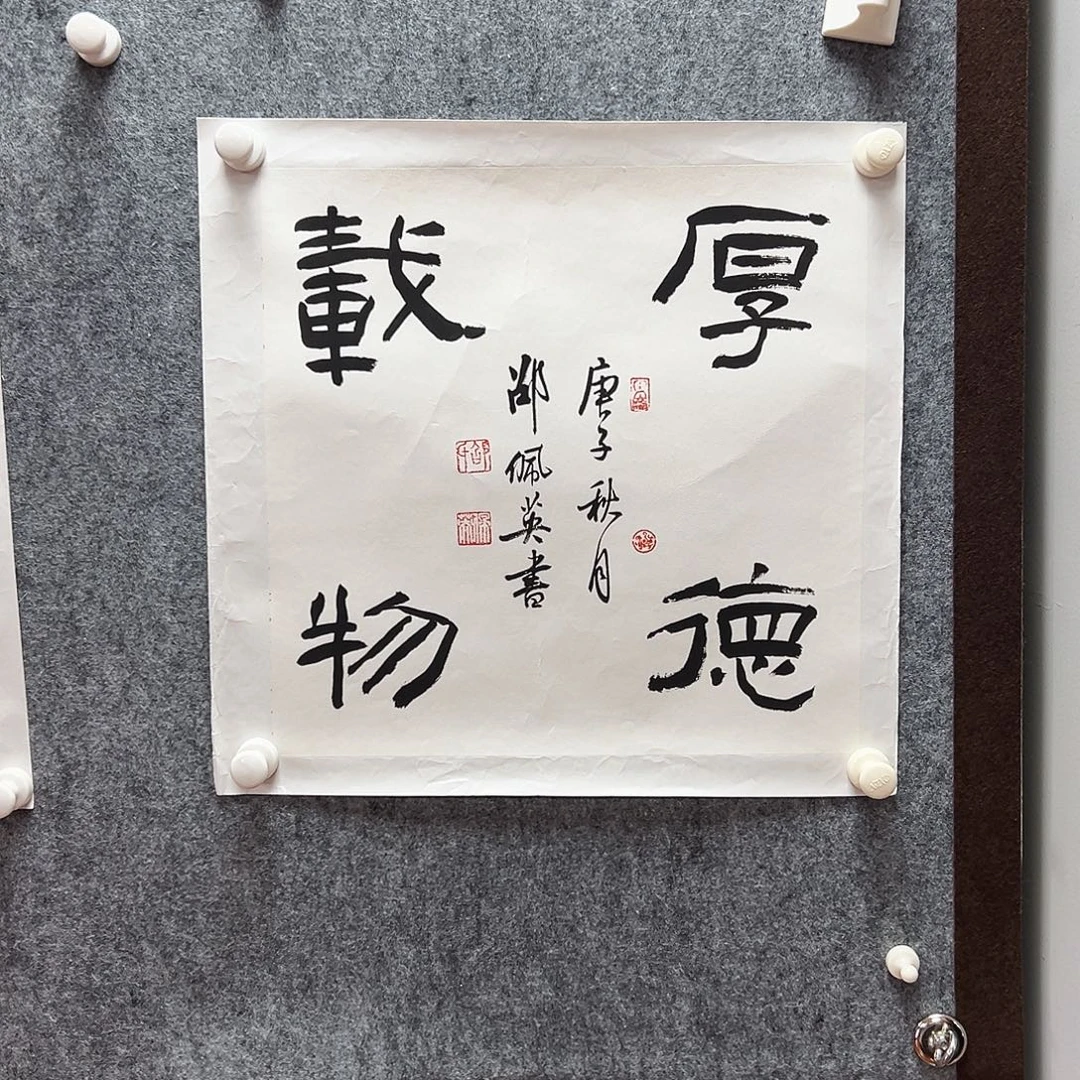 厚德
載物
庚子秋月
邵佩英書